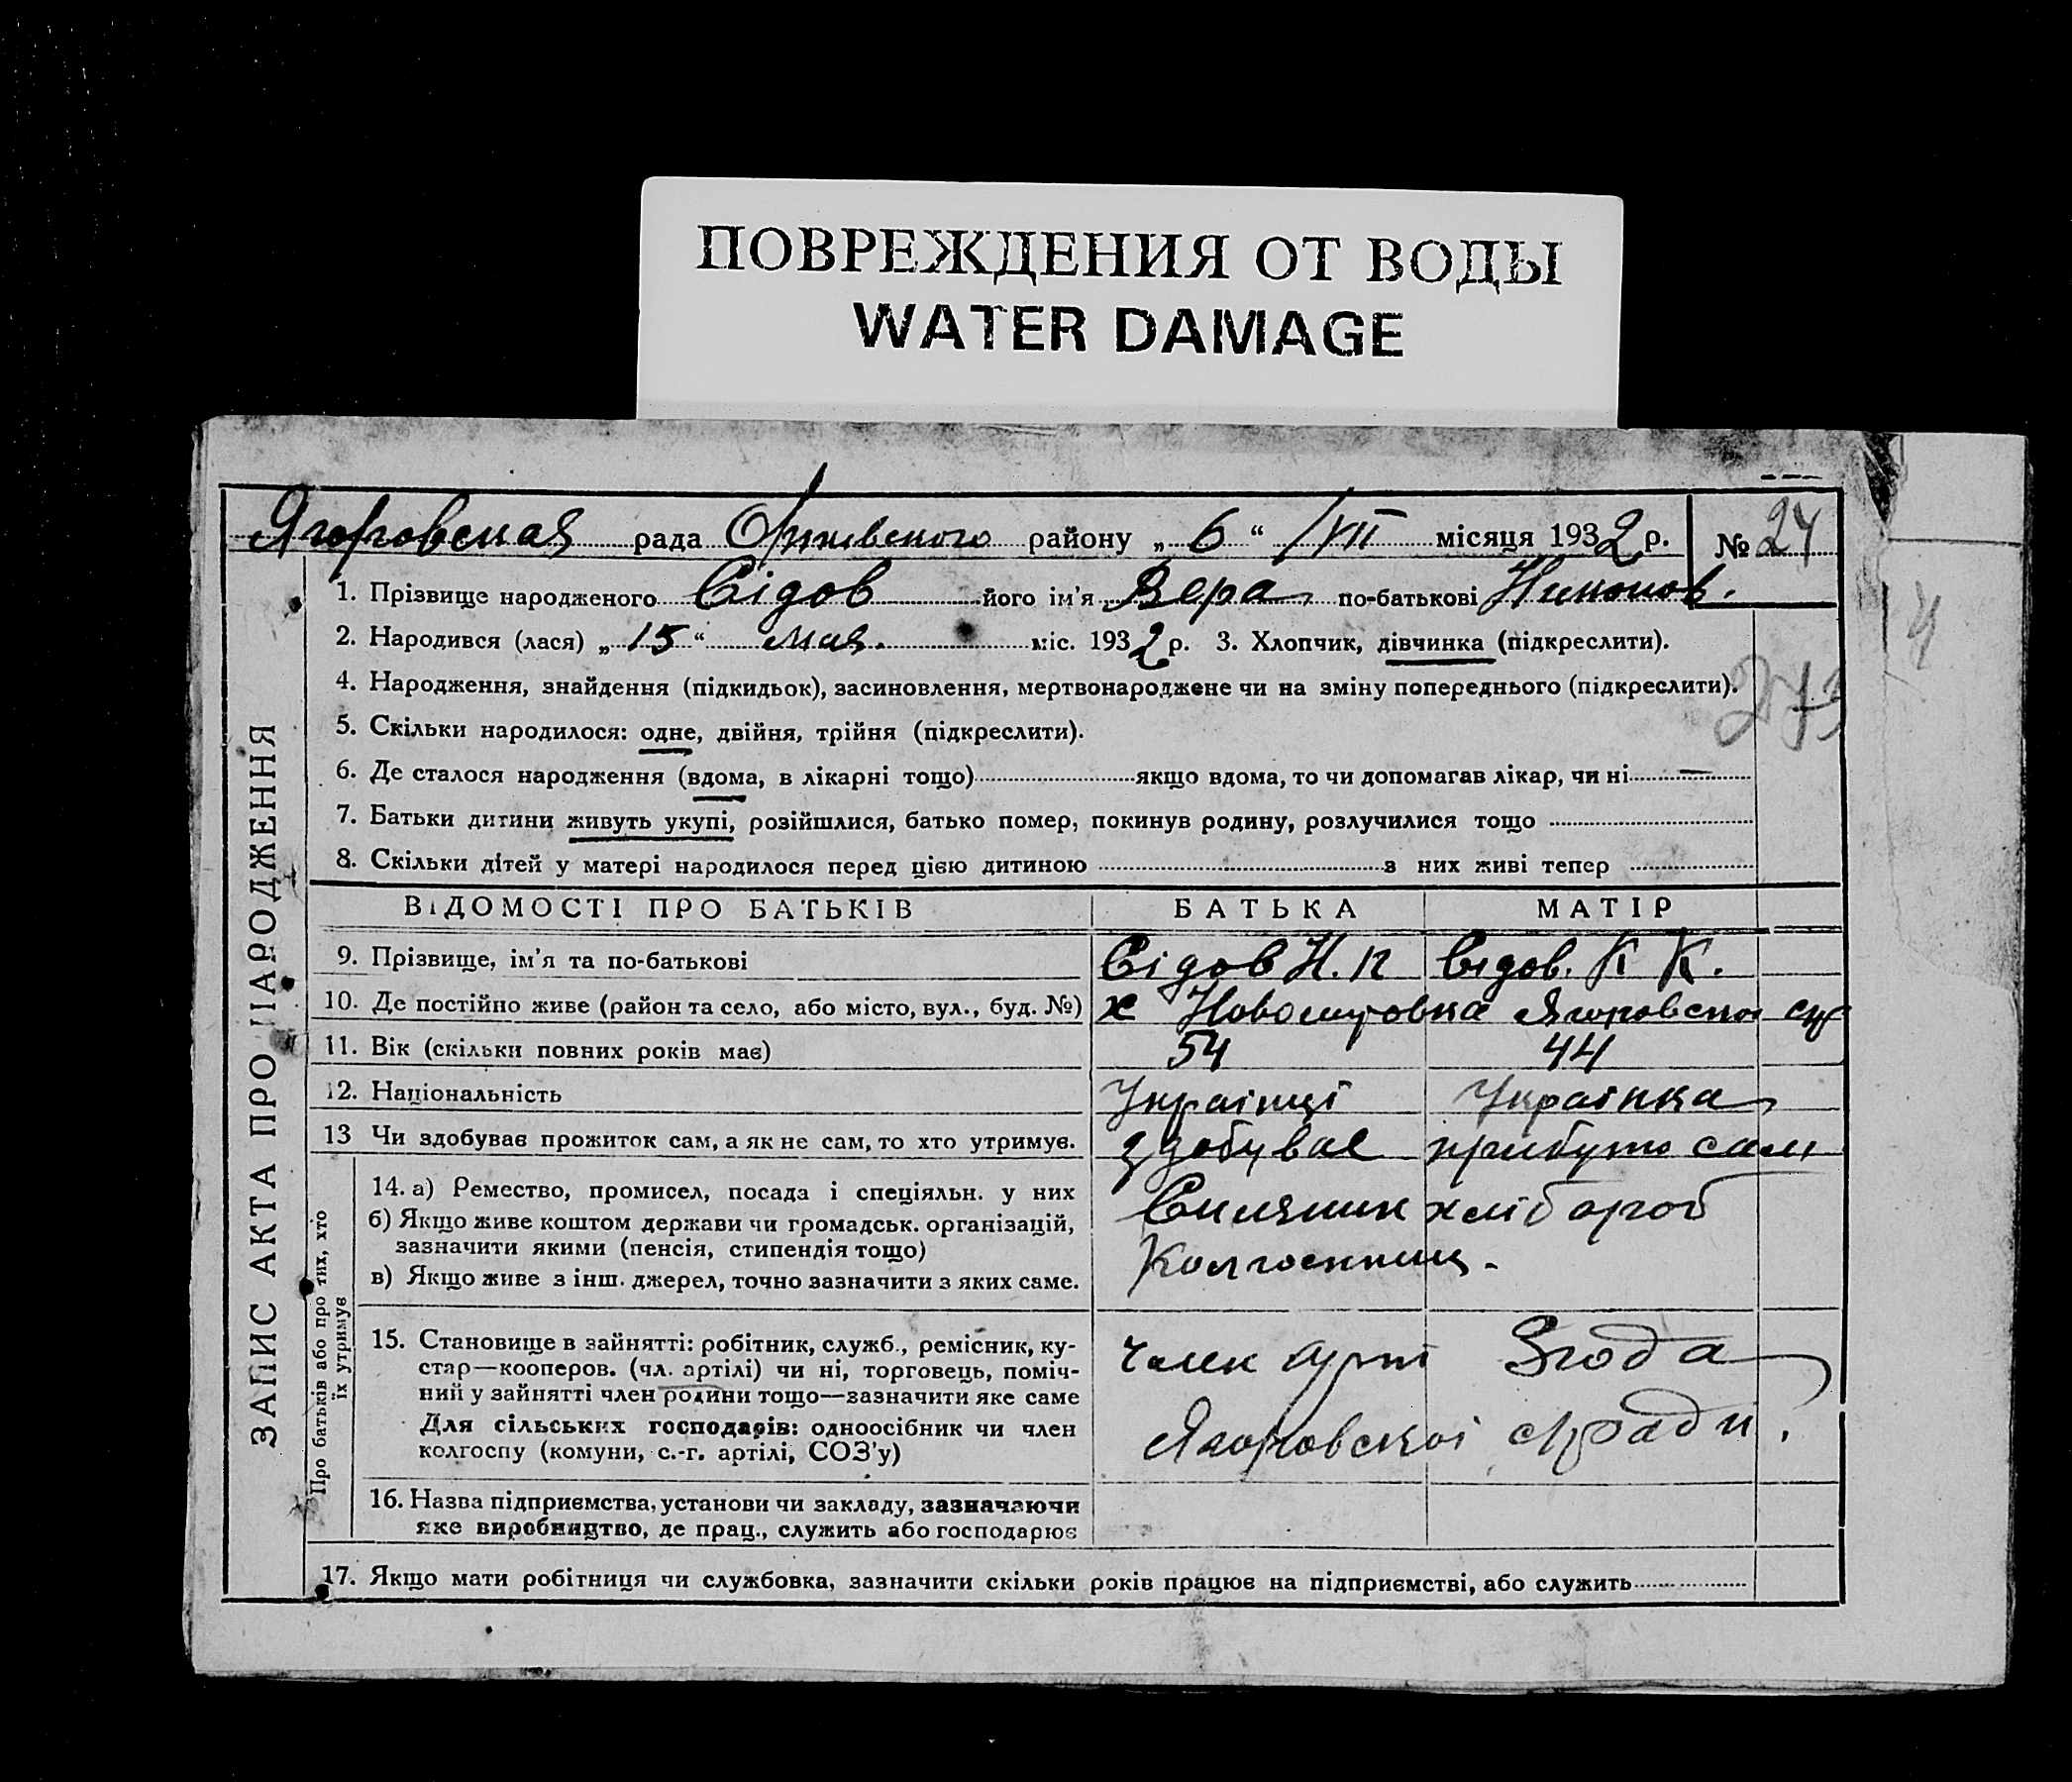 ПОВРЕЖДЕНИЯ ОТ ВОДЫ
WATER DAMAGE
рада району „ 6 “ VII місяця 1932 р. № 24
1. Прізвище народженого Сідов його ім’я Вера по-батькові Никонов.
2. Народився (лася) „ 15 “ мая. міс. 1932 р. 3. Хлопчик, дівчинка (підкреслити).
4. Народження, знайдення (підкидьок), засиновлення, мертвонароджене чи на зміну попереднього (підкреслити).
5. Скільки народилося: одне, двійня, трійня (підкреслити).
6. Де сталося народження (вдома, в лікарні тощо) якщо вдома, то чи допомагав лікар, чи ні —
7. Батьки дитини живуть укупі, розійшлися, батько помер, покинув родину, розлучилися тощо
8. Скільки дітей у матері народилося перед цією дитиною з них живі тепер
ЗАПИС АКТА ПРО НАРОДЖЕННЯ
ВІДОМОСТІ ПРО БАТЬКІВ БАТЬКА МАТІР
9. Прізвище, ім’я та по-батькові Сідов Н. П Сідов. К К.
10. Де постійно живе (район та село, або місто, вул., буд. №) х
11. Вік (скільки повних років має) 54 44
12. Національність Українці Українка
13 Чи здобуває прожиток сам, а як не сам, то хто утримує. здобувае сам
Про батьків або про тих, хто
їх утримує
14. а) Ремество, промисел, посада і спеціяльн. у них Силяник хлібороб
б) Якщо живе коштом держави чи громадськ. організацій,
зазначити якими (пенсія, стипендія тощо)
в) Якщо живе з інш. джерел, точно зазначити з яких саме.
15. Становище в зайнятті: робітник, служб., ремісник, ку-
стар—кооперов. (чл. артілі) чи ні, торговець, поміч- член Згода
ний у зайнятті член родини тощо—зазначити яке саме
Для сільських господарів: одноосібник чи член
колгоспу (комуни, с.-г. артілі, СОЗ’у)
16. Назва підприємства, установи чи закладу, зазначаючи
яке виробництво, де прац., служить або господарює
17. Якщо мати робітниця чи службовка, зазначити скільки років працює на підприємстві, або служить